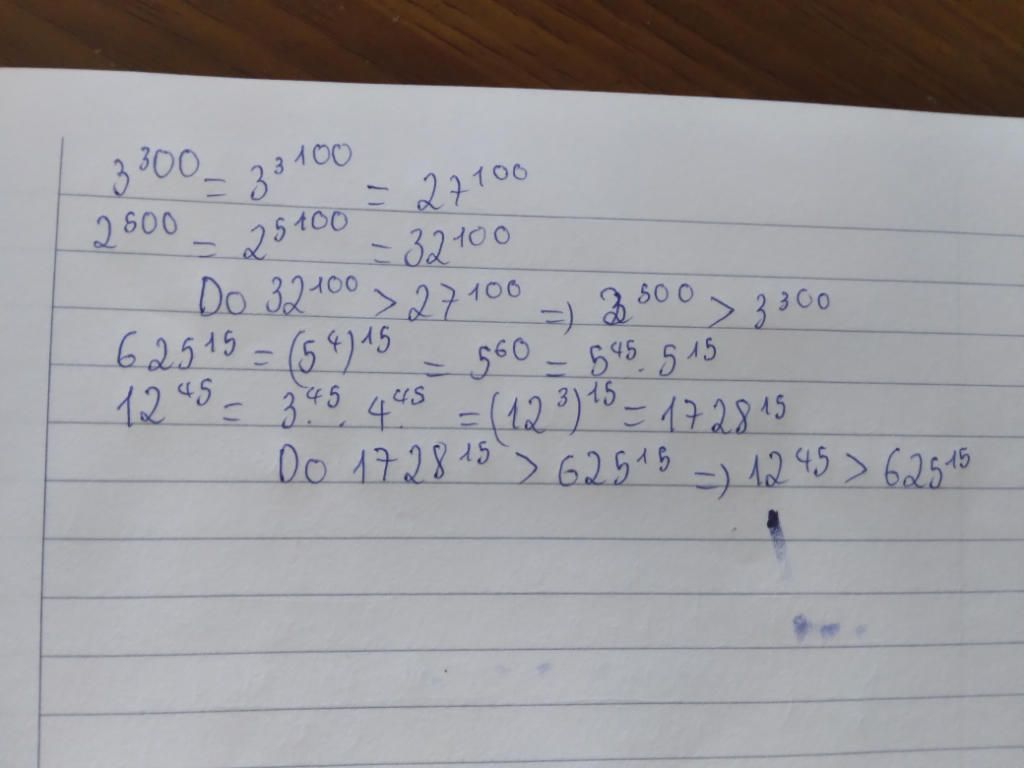 3^300 = 3^3^100 = 27^100
2^500 = 2^5^100 = 32^100
Do 32^100 > 27^100 => 2^500 > 3^300
625^15 = (5^4)^15 = 5^60 = 5^45 . 5^15
12^45 = 3^45 . 4^45 = (12^3)^15 = 1728^15
Do 1728^15 > 625^15 => 12^45 > 625^15